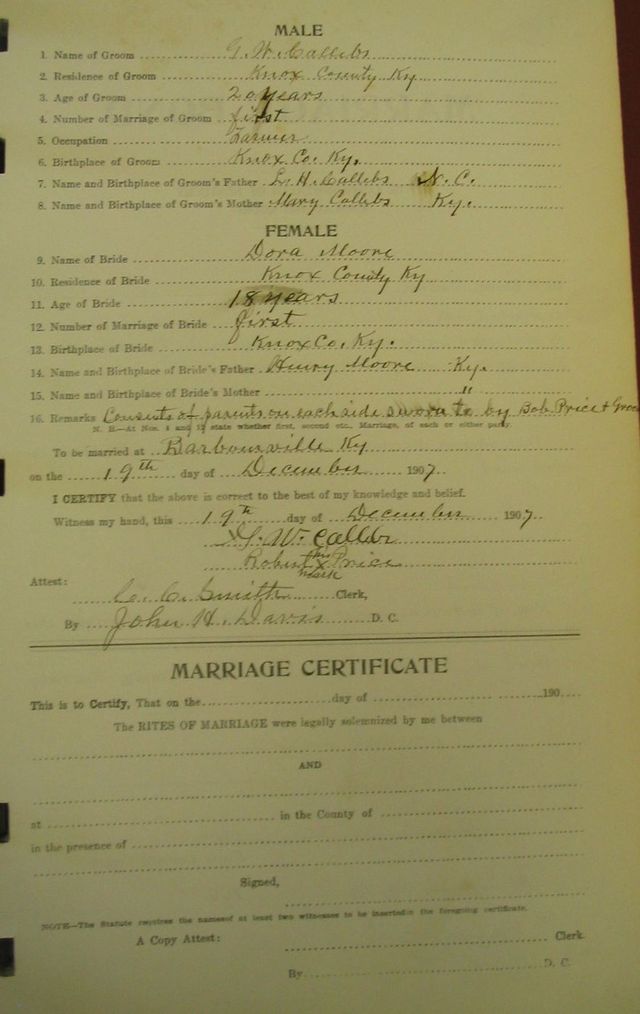 MALE
1. Name of Groom G. W. Callebs
2. Residence of Groom Knox County Ky
3. Age of Groom 20 years
4. Number of Marriage of Groom first
5. Occupation Farmer
6. Birthplace of Groom Knox Co. Ky.
7. Name and Birthplace of Groom's Father L. H. Callebs N. C.
8. Name and Birthplace of Groom's Mother Mary Callebs Ky.
FEMALE
9. Name of Bride Dora Moore
10. Residence of Bride Knox County Ky
11. Age of Bride 18 years
12. Number of Marriage of Bride first
13. Birthplace of Bride Knox Co. Ky.
14. Name and Birthplace of Bride's Father Henry Moore Ky.
15. Name and Birthplace of Bride's Mother "
16. Remarks of parents on each side sworn to by Bob Price &
N. B.—At Nos. 4 and 12 state whether first, second etc., Marriage, of each or either party.
To be married at Barbourville Ky
on the 19th day of December 1907.
I CERTIFY that the above is correct to the best of my knowledge and belief.
Witness my hand, this 19th day of December 1907.
G. W. Callebs
Robert his x mark Price
Attest:
C. C. Smith Clerk,
By John H. Davis D. C.
MARRIAGE CERTIFICATE
This is to Certify, That on the day of 190
The RITES OF MARRIAGE were legally solemnized by me between
AND
at in the County of
in the presence of
Signed,
NOTE—The Statute requires the names of at least two witnesses to be inserted in the foregoing certificate.
A Copy Attest: Clerk.
By D. C.